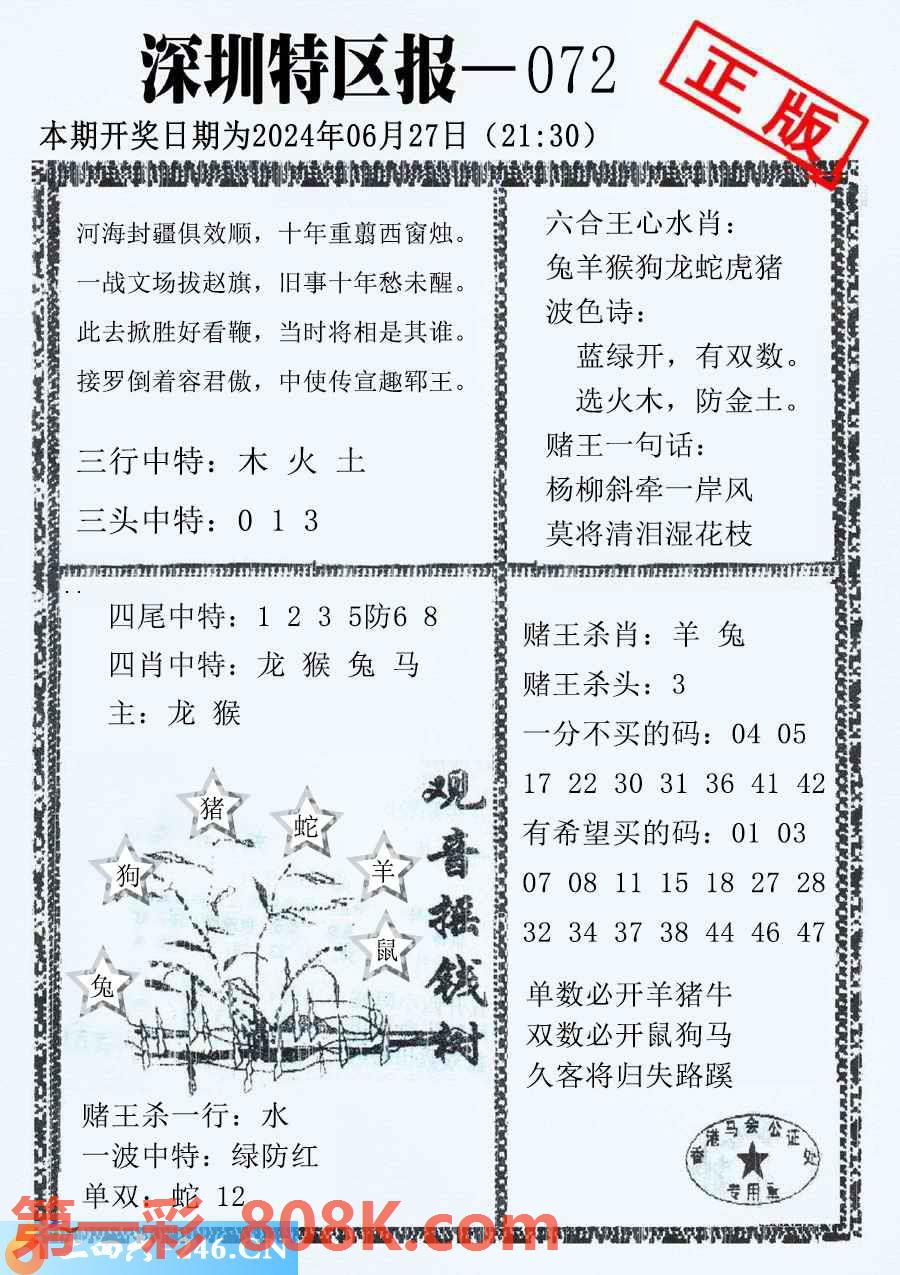 深圳特区报—072
正版
本期开奖日期为2024年06月27日（21:30）
河海封疆俱效顺，十年重翦西窗烛。
一战文场拔赵旗，旧事十年愁未醒。
此去掀胜好看鞭，当时将相是其谁。
接罗倒着容君傲，中使传宣趣郓王。
三行中特：木 火 土
三头中特：0 1 3
六合王心水肖：
兔羊猴狗龙蛇虎猪
波色诗：
蓝绿开，有双数。
选火木，防金土。
赌王一句话：
杨柳斜牵一岸风
莫将清泪湿花枝
四尾中特：1 2 3 5防6 8
四肖中特：龙 猴 兔 马
主：龙 猴
猪
蛇
狗
羊
鼠
兔
观音摇钱树
赌王杀一行：水
一波中特：绿防红
单双：蛇 12
赌王杀肖：羊 兔
赌王杀头：3
一分不买的码：04 05
17 22 30 31 36 41 42
有希望买的码：01 03
07 08 11 15 18 27 28
32 34 37 38 44 46 47
单数必开羊猪牛
双数必开鼠狗马
久客将归失路蹊
香港马会公证处
专用章
第一彩.808K.com
246.CN